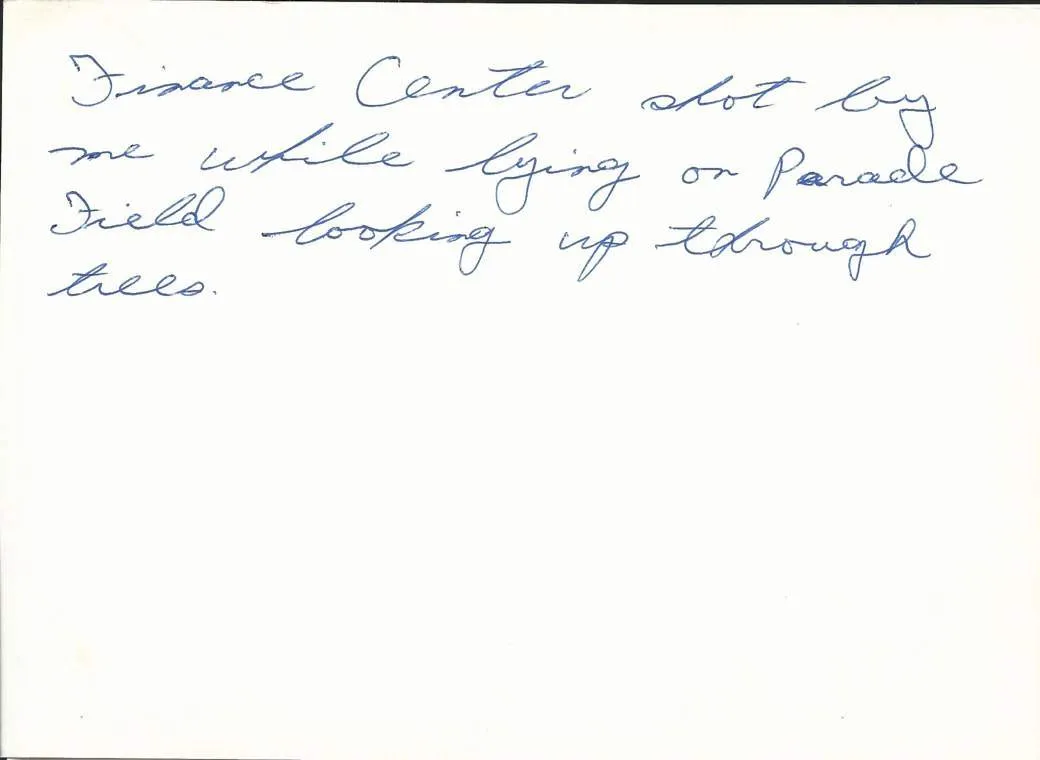 Finance Center shot by
me while lying on Parade
Field looking up through
trees.